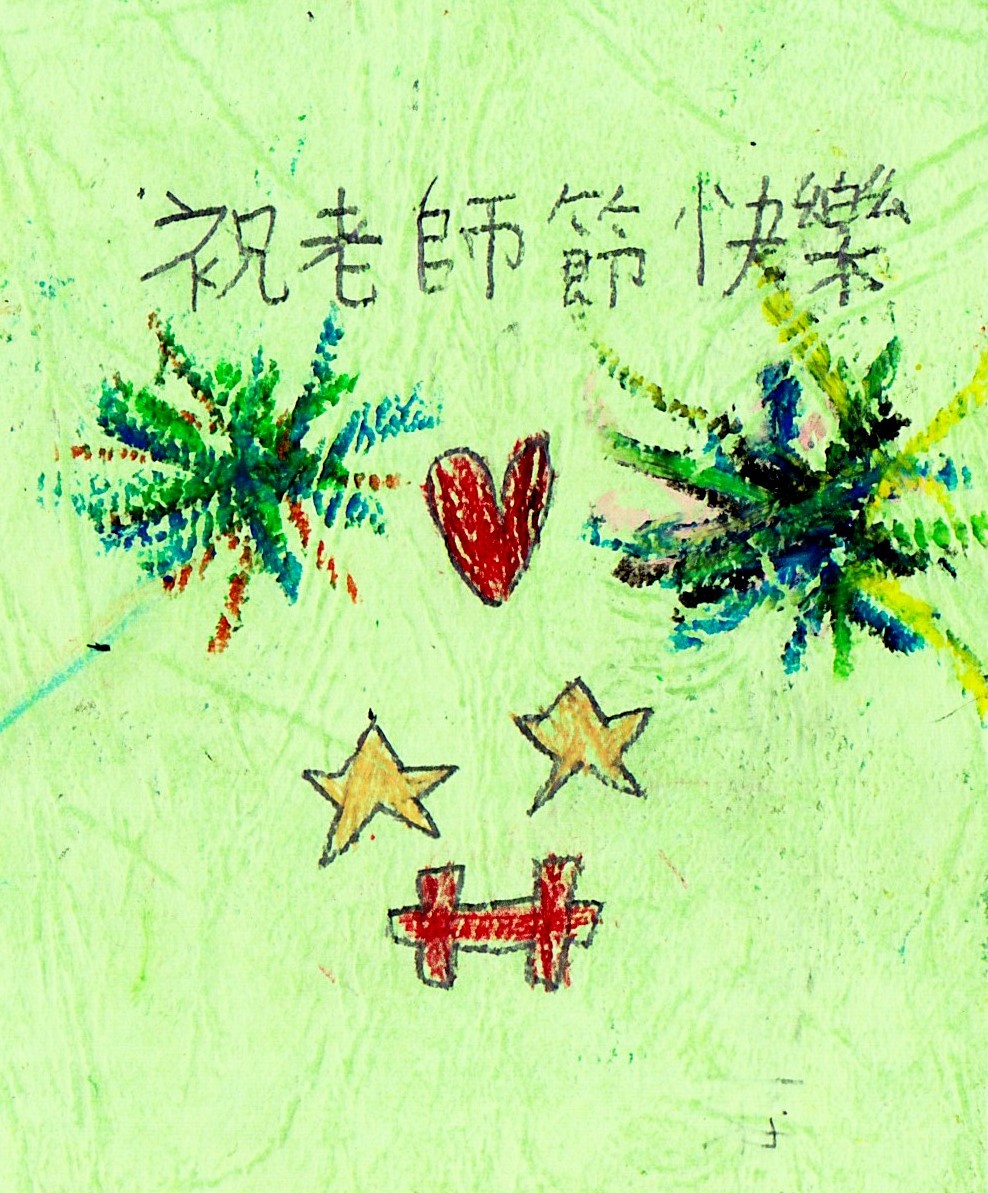 祝老師節快樂